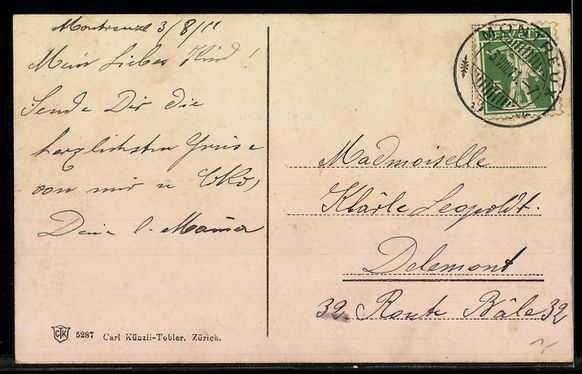 Montreux 3/8/11
Mein liebes Kind!
Sende Dir die
herzlichsten Grüsse
von mir u
Deine l. Mama
MONTREUX
Madmoiselle
Klärle Leopoldt.
Delemont
32 Route Bâle 32
5287 Carl Künzli-Tobler, Zürich.